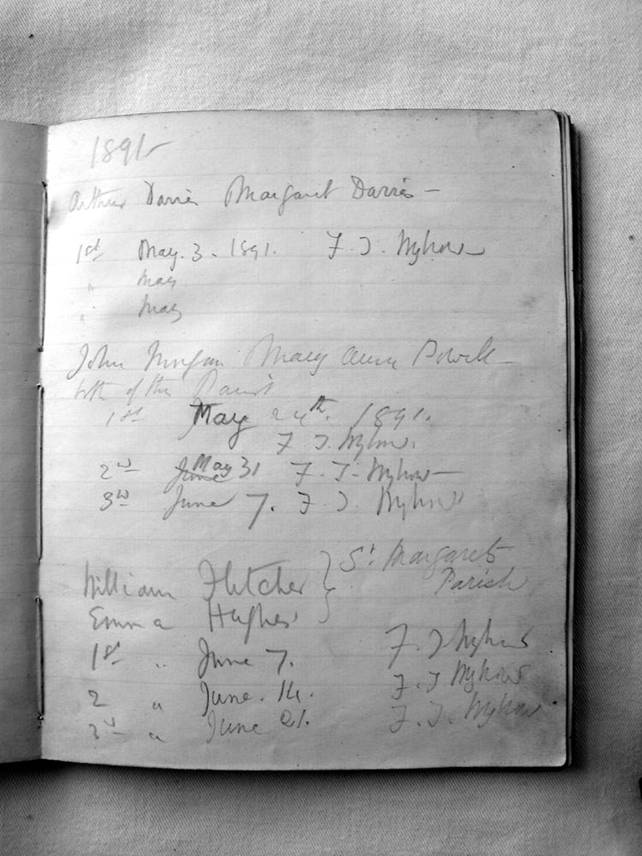 1891
Arthur Davies Margaret Davies —
1st May. 3. 1891. F. J.
" May
" May
John Morgan Mary Ann Powell
both of this Parish
1st May 24th. 1891.
F. J.
2nd June May 31 F. J.
3rd June 7. F. J.
William Fletcher } St Margarets
Parish
Emma Hughes
1st " June 7. F. J.
2 " June. 14. F. J.
3rd " June 21. F. J.